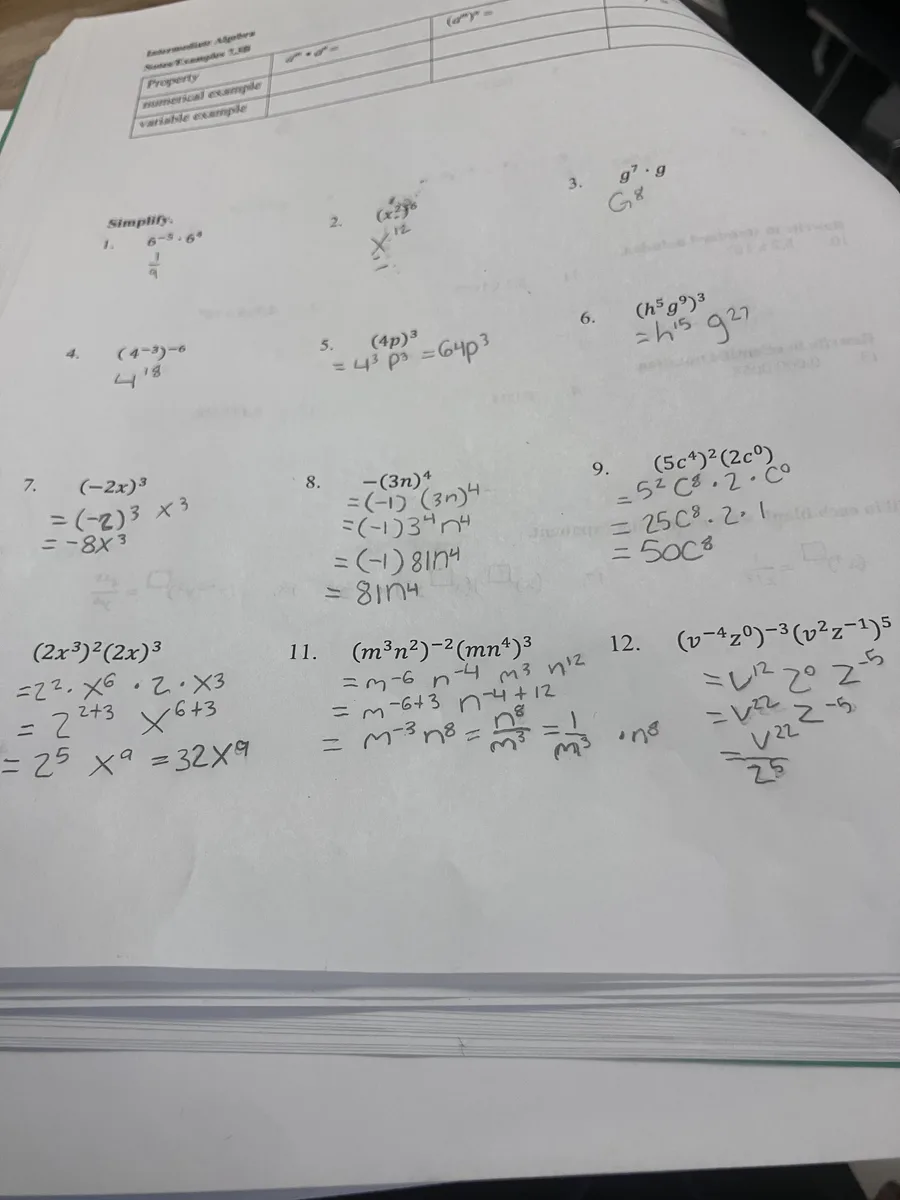 Intermediate Algebra
Notes/Examples 7.1B
Property
numerical example
variable example
(aᵐ)ⁿ =
Simplify.
1. 6⁻⁵ · 6⁴
1/9
2.
X¹²
3. g⁷ · g
G⁸
4. (4⁻³)⁻⁶
4¹⁸
5. (4p)³
= 4³ P³ = 64p³
6. (h⁵g⁹)³
= h¹⁵ g²⁷
7. (−2x)³
= (-2)³ x³
= -8x³
8. −(3n)⁴
= (-1) (3n)⁴
= (-1)3⁴n⁴
= (-1) 81n⁴
= 81n⁴
9. (5c⁴)²(2c⁰)
= 5² C⁸ · 2 · C⁰
= 25C⁸ · 2 · 1
= 50C⁸
(2x³)²(2x)³
= 2² · X⁶ · 2 · X3
= 2²⁺³ X⁶⁺³
= 2⁵ X⁹ = 32X⁹
11. (m³n²)⁻²(mn⁴)³
= m⁻⁶ n⁻⁴ m³ n¹²
= m⁻⁶⁺³ n⁻⁴⁺¹²
= m⁻³ n⁸ = n⁸/m³ = 1/m³ · n⁸
12. (v⁻⁴z⁰)⁻³(v²z⁻¹)⁵
= V¹² Z⁰ Z⁻⁵
= V²² Z⁻⁵
= V²²/Z⁵